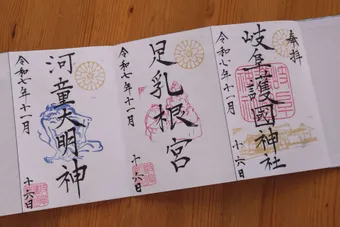 奉拝
岐阜護國神社
令和七年十一月
十六日
足乳根宮
令和七年十一月
十六日
河童大明神
令和七年十一月
十六日